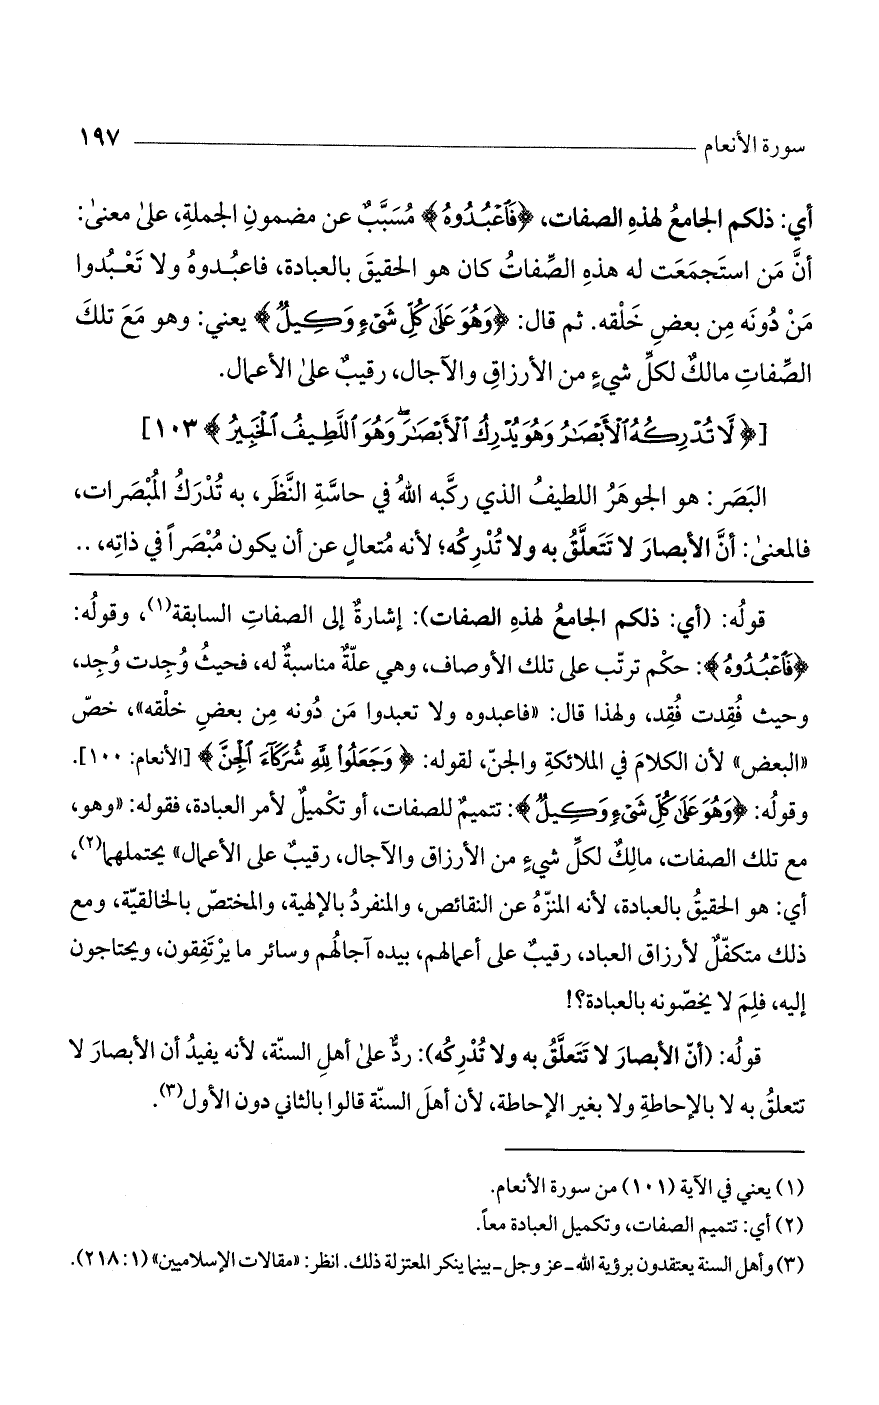 سورة الأنعام ١٩٧
أي: ذلكم الجامعُ لهذِه الصفات، ﴿فَٱعْبُدُوهُ﴾ مُسَبَّبٌ عن مضمونِ الجملةِ، على معنىٰ:
أنَّ مَن استَجمَعَت له هذهِ الصِّفاتُ كان هو الحقيقَ بالعبادة، فاعبُدوهُ ولا تَعْبُدوا
مَنْ دُونَه مِن بعضِ خَلْقه. ثم قال: ﴿وَهُوَ عَلَىٰ كُلِّ شَىْءٍ وَكِيلٌ﴾ يعني: وهو مَعَ تلكَ
الصِّفاتِ مالكٌ لكلِّ شيءٍ من الأرزاقِ والآجال، رقيبٌ علىٰ الأعمال.
[﴿لَّا تُدْرِكُهُ ٱلْأَبْصَـٰرُ وَهُوَ يُدْرِكُ ٱلْأَبْصَـٰرَ ۖ وَهُوَ ٱللَّطِيفُ ٱلْخَبِيرُ﴾ ١٠٣]
البَصَر: هو الجوهَرُ اللطيفُ الذي ركَّبه اللهُ في حاسَّةِ النَّظَر، به تُدْرَكُ المُبْصَرات،
فالمعنىٰ: أنَّ الأبصارَ لا تَتَعلَّقُ به ولا تُدْرِكُه؛ لأنه مُتعالٍ عن أن يكون مُبْصَراً في ذاتِه، ..
قولُه: (أي: ذلكم الجامعُ لهذِه الصفات): إشارةٌ إلى الصفاتِ السابقة(١)، وقولُه:
﴿فَٱعْبُدُوهُ﴾: حكْم ترتّب على تلك الأوصاف، وهي علّةٌ مناسبةٌ له، فحيثُ وُجِدت وُجِد،
وحيث فُقِدت فُقِد، ولهذا قال: «فاعبدوه ولا تعبدوا مَن دُونه مِن بعضِ خلْقه»، خصّ
«البعض» لأن الكلامَ في الملائكةِ والجنّ، لقوله: ﴿وَجَعَلُوا۟ لِلَّهِ شُرَكَآءَ ٱلْجِنَّ﴾ [الأنعام: ١٠٠].
وقولُه: ﴿وَهُوَ عَلَىٰ كُلِّ شَىْءٍ وَكِيلٌ﴾: تتميمٌ للصفات، أو تكْميلٌ لأمر العبادة، فقوله: «وهو،
مع تلك الصفات، مالِكٌ لكلِّ شيءٍ من الأرزاق والآجال، رقيبٌ على الأعمال» يحتملهما(٢)،
أي: هو الحقيقُ بالعبادة، لأنه المنزّهُ عن النقائص، والمنفردُ بالإلهية، والمختصّ بالخالقيّة، ومع
ذلك متكفّلٌ لأرزاق العباد، رقيبٌ على أعمالهم، بيده آجالُهم وسائر ما يرْتَفِقون، ويحتاجون
إليه، فلِمَ لا يخصّونه بالعبادة؟!
قولُه: (أنّ الأبصارَ لا تَتَعلَّقُ به ولا تُدْرِكُه): ردٌّ علىٰ أهلِ السنّة، لأنه يفيدُ أن الأبصارَ لا
تتعلقُ به لا بالإحاطةِ ولا بغير الإحاطة، لأن أهلَ السنّة قالوا بالثاني دون الأول(٣).
(١) يعني في الآية (١٠١) من سورة الأنعام.
(٢) أي: تتميم الصفات، وتكميل العبادة معاً.
(٣) وأهل السنة يعتقدون برؤية الله ـ عز وجل ـ بينما ينكر المعتزلة ذلك. انظر: «مقالات الإسلاميين» (١: ٢١٨).